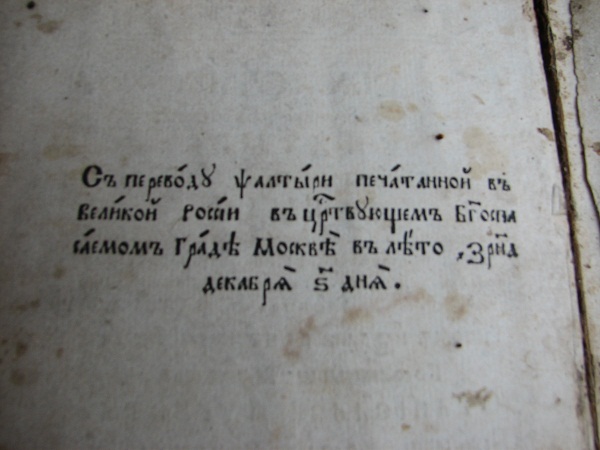 Съ перево́ду ѱалты́ри печа́танной въ
вели́кой росси́и въ црⷭ҇твующемъ Бг҃оспа
са́емомъ Гра́дѣ Москвѣ̀ въ лѣ́то ҂зрн҃д
декабрѧ̀ ѕ҃ днѧ̀.